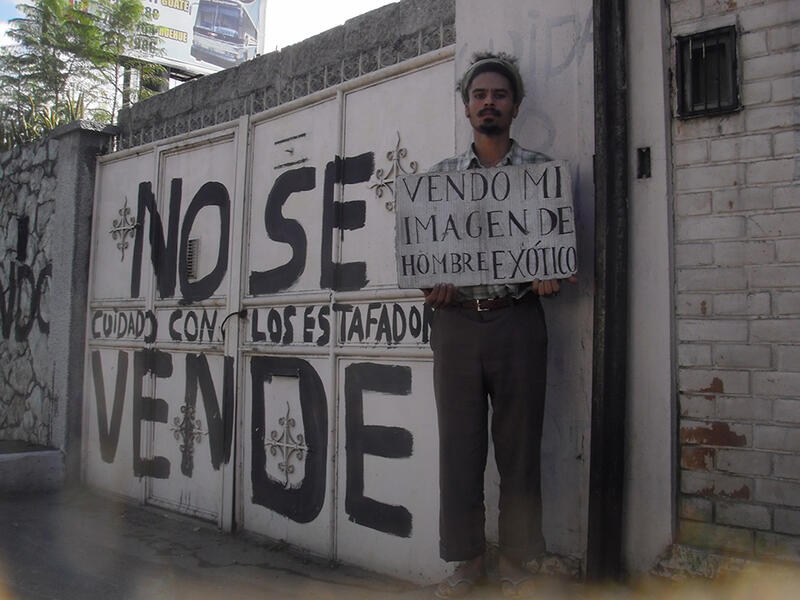 NO SE
CUIDADO CON LOS ESTAFADOR
VENDE
VENDO MI
IMAGEN DE
HOMBRE EXÓTICO
GUATE
CUIDA